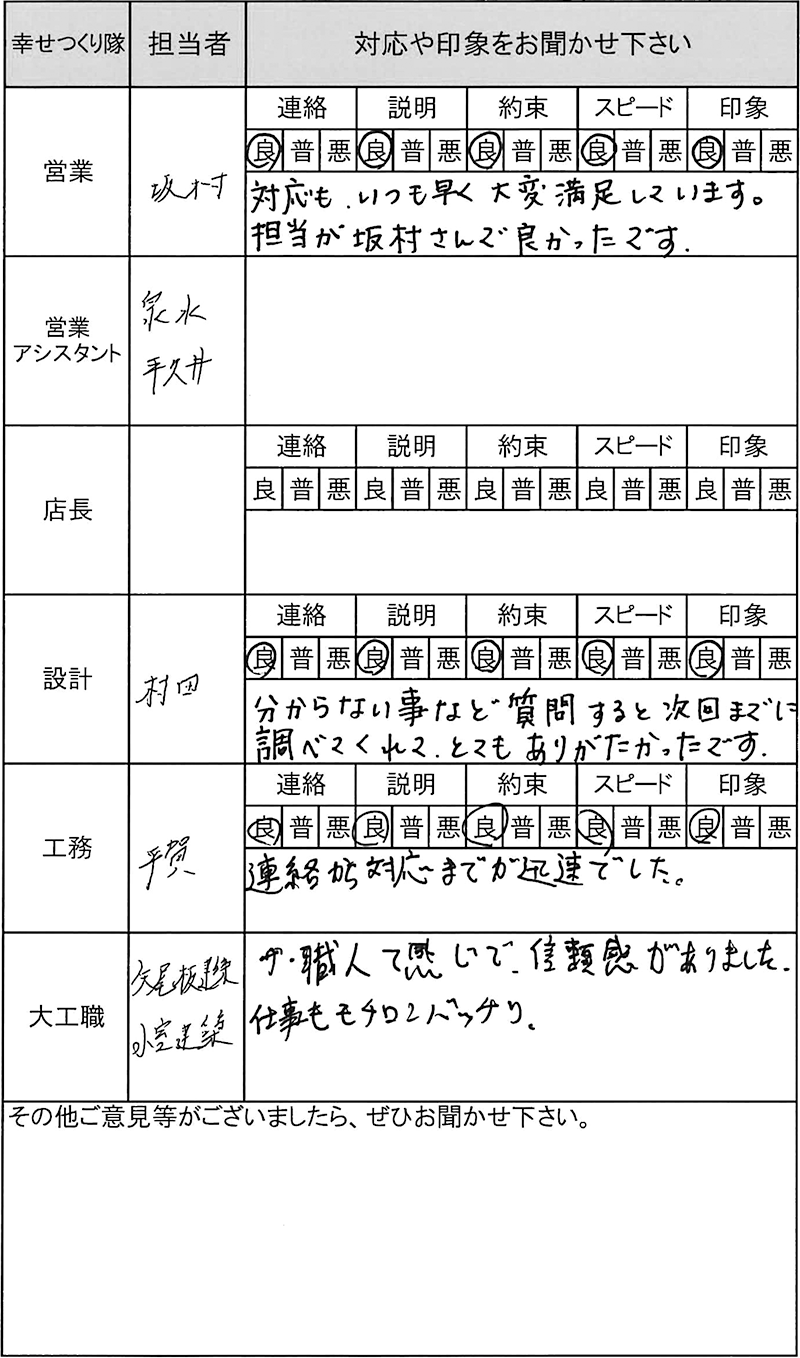 幸せつくり隊 担当者 対応や印象をお聞かせ下さい
営業 坂村
連絡 説明 約束 スピード 印象
良 普 悪 良 普 悪 良 普 悪 良 普 悪 良 普 悪
対応も、いつも早く大変満足しています。
担当が坂村さんで良かったです.
営業
アシスタント
泉水
平久井
店長
連絡 説明 約束 スピード 印象
良 普 悪 良 普 悪 良 普 悪 良 普 悪 良 普 悪
設計 村田
連絡 説明 約束 スピード 印象
良 普 悪 良 普 悪 良 普 悪 良 普 悪 良 普 悪
分からない事など質問すると次回までに
調べてくれて、とてもありがたかったです.
工務 平賀
連絡 説明 約束 スピード 印象
良 普 悪 良 普 悪 良 普 悪 良 普 悪 良 普 悪
連絡から対応までが迅速でした。
大工職
矢尾板建築
小室建築
ザ・職人て感じで、信頼感がありました.
仕事もモチロンバッチリ。
その他ご意見等がございましたら、ぜひお聞かせ下さい。